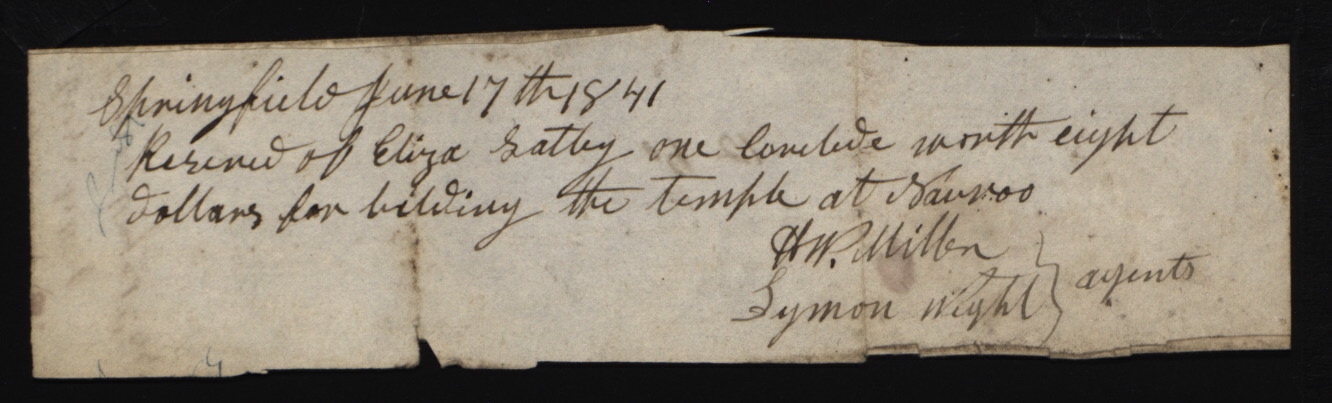 Springfield June 17th 1841
Reseved of Eliza Gatby one Coverlede worth eight
dollars for bilding the temple at Nauvoo
H W. Miller
Lymon Wight } agents